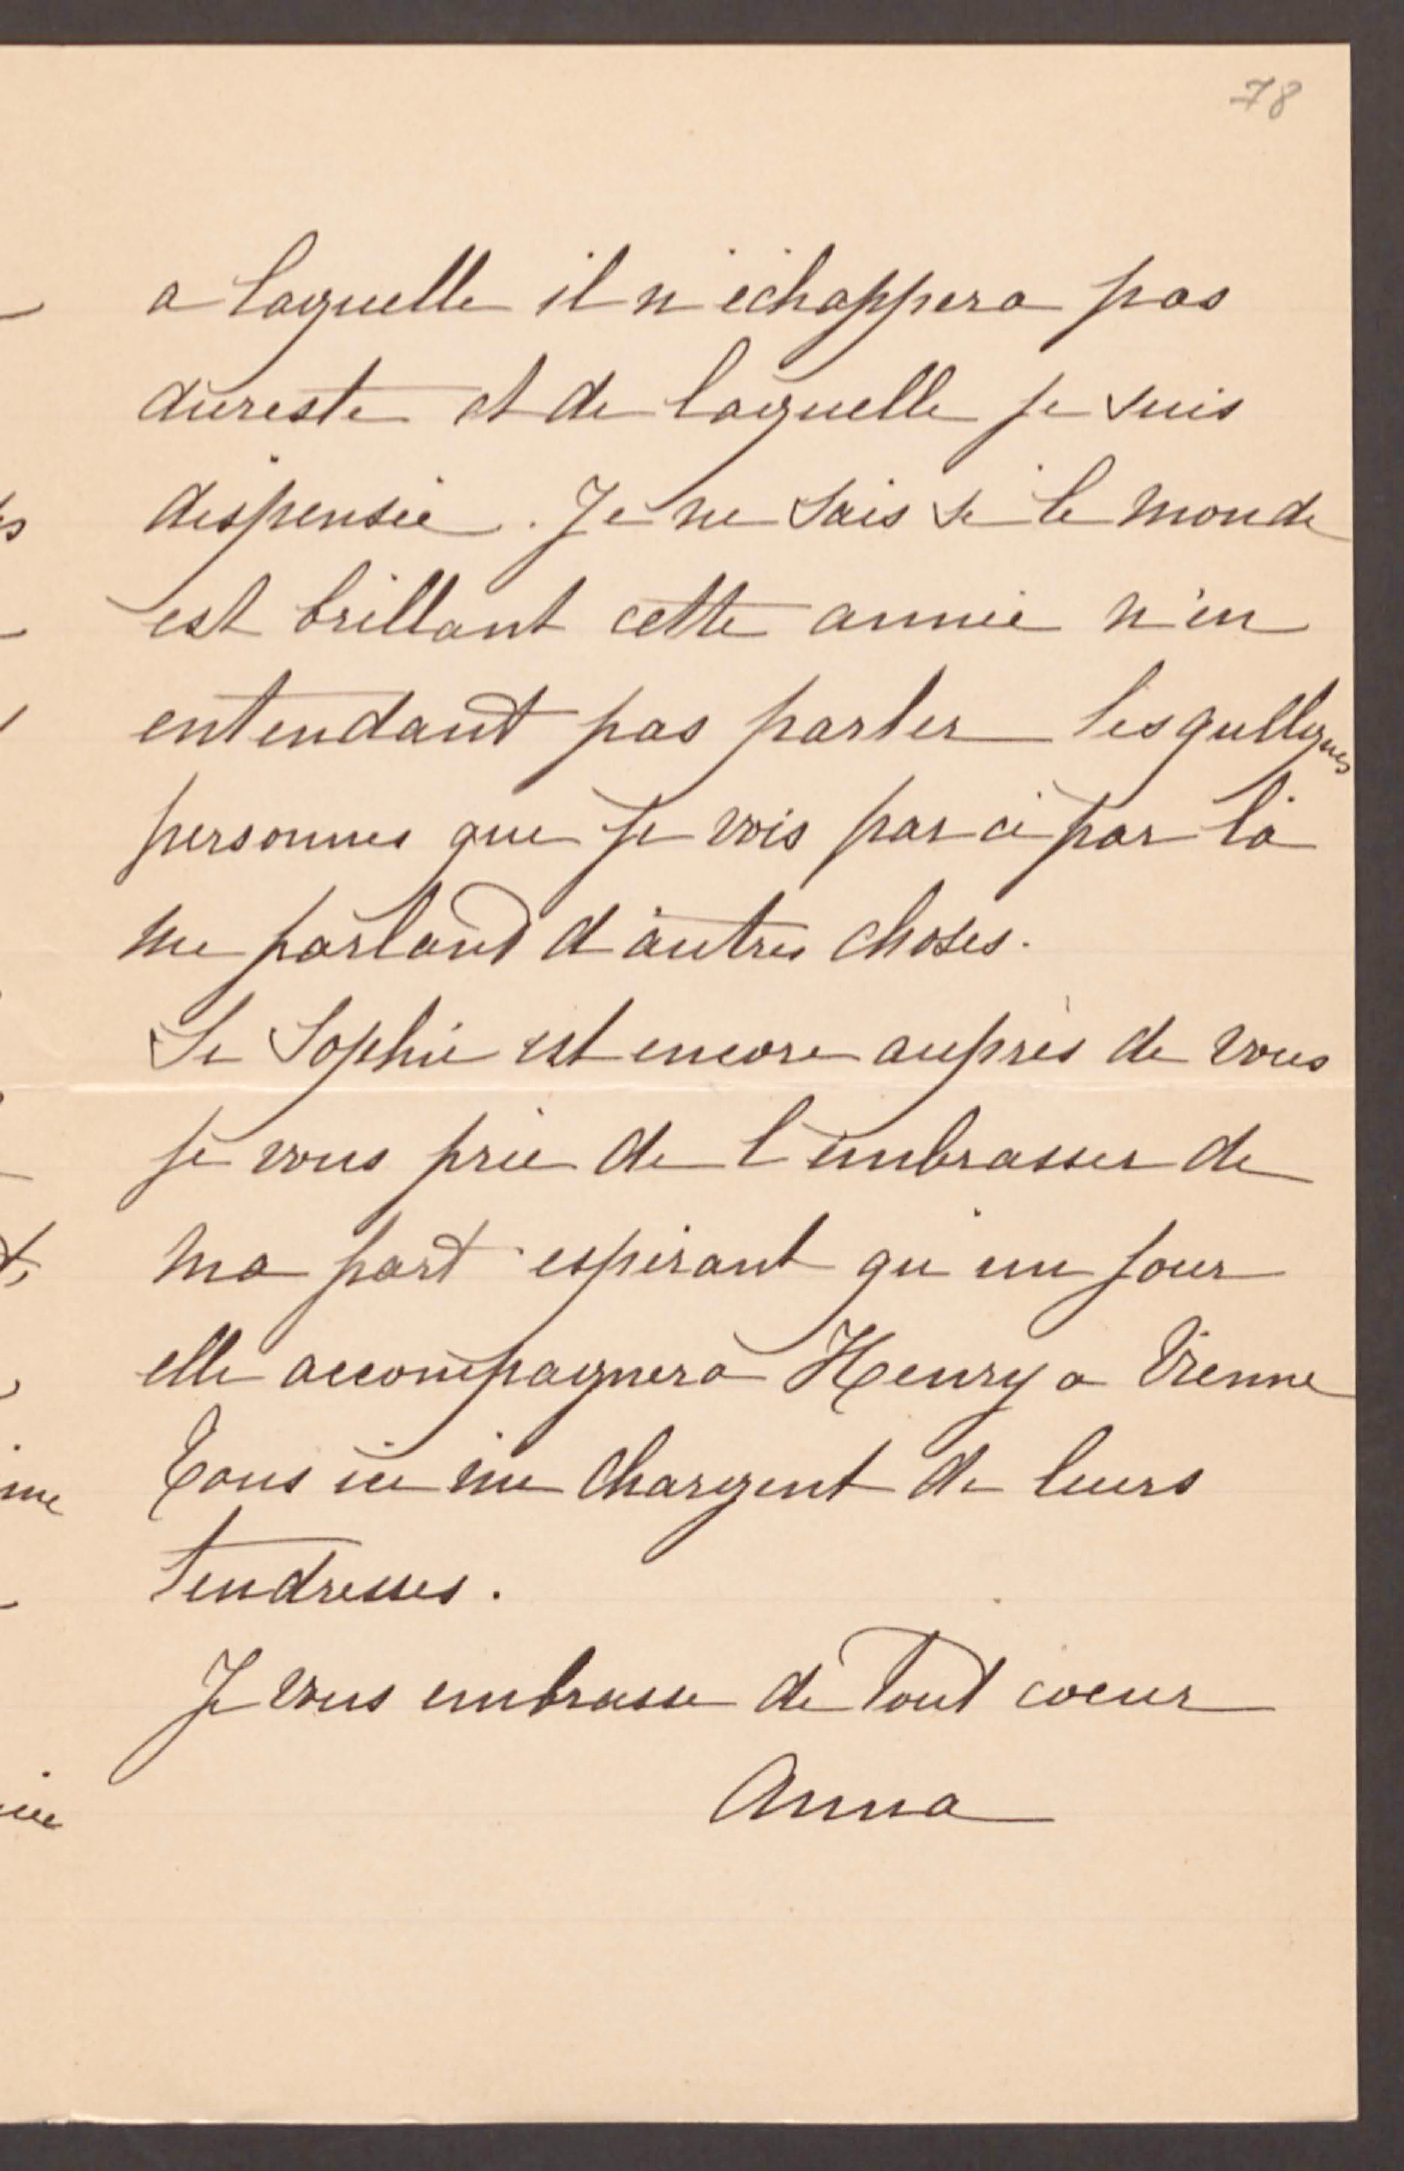 78
a laquelle il n'échappera pas
dureste et de laquelle je suis
dispensée. Je ne sais si le monde
est brillant cette année n'en
entendant pas parler les quelques
personnes que je vois par ci par là
me parlant d'autres choses.
Si Sophie est encore auprès de vous
je vous prie de l'embrasser de
ma part espérant qu'un jour
elle accompagnera Henry a Vienne
Tous ici me chargent de leurs
tendresses.
Je vous embrasse de tout coeur
Anna